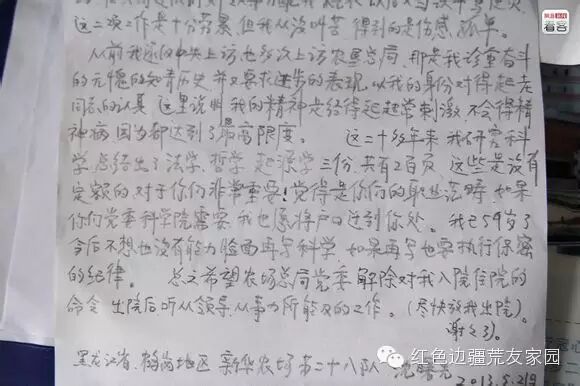 这二项工作是十分劳累但我从没叫苦 得到的是伤感 孤单。
从前我返向中央上访也多次上访农垦总局，那是我珍重奋斗
的无愧的知青历史 并又要求进步的表现 以我的身份对得起老
同志的认真 这里说明 我的精神是经得起超常刺激 不会得精
神病 因为都达到了最高限度。 这二十多年来 我研究科
学 总结出了法学、哲学 起源学 三份 共有2百页 这些是没有
定额的 对于你们非常重要！觉得是你们的职业法畴 如果
你们党委科学院需要 我也愿将户口迁到你处。 我已59岁了
今后不想也没有能力脸面再写科学 如果再写也要执行保密
的纪律。 总之希望农场总局党委 解除对我入院住院的
命令 出院后 听从领导 从事力所能及的工作。（尽快放我出院）。
谢谢了。
黑龙江省 鹤岗地区 农场第二十八队
2015.5.29
网易 看客
红色边疆荒友家园